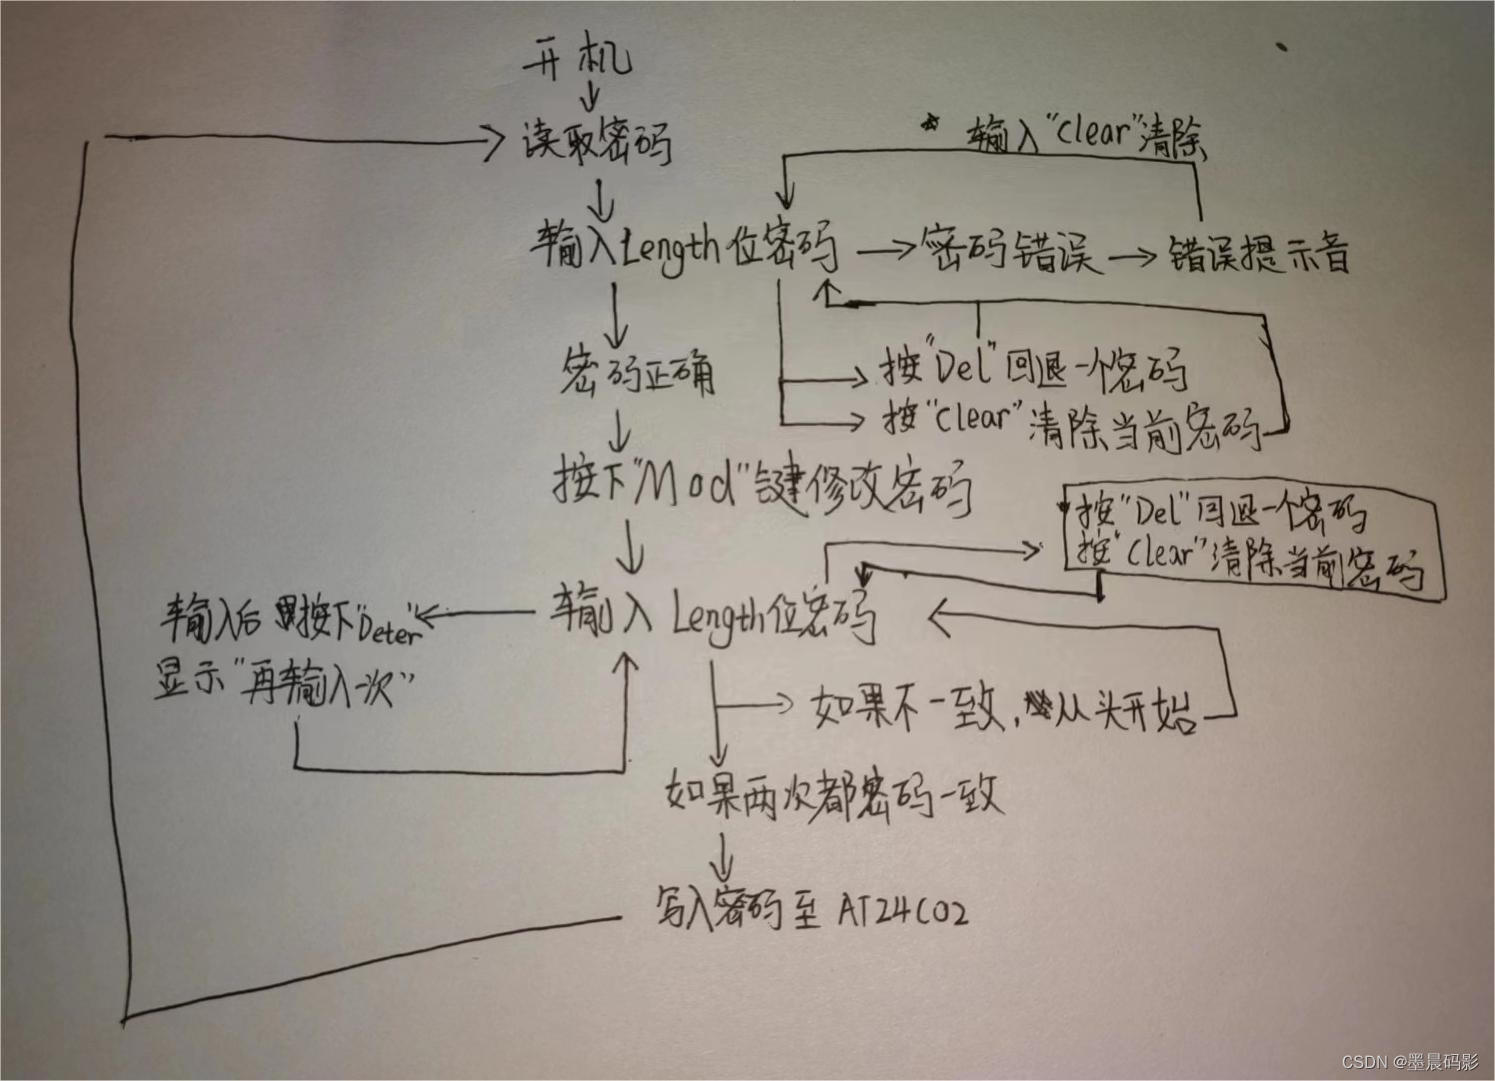 开机
读取密码
输入"clear"清除
输入Length位密码
密码错误
错误提示音
密码正确
按"Del"回退一个密码
按"clear"清除当前密码
按下"Mod"键修改密码
按"Del"回退一个密码
按"Clear"清除当前密码
输入后 按下"Deter"
显示"再输入一次"
输入 Length位密码
如果不一致,从头开始
如果两次都密码一致
写入密码至 AT24C02
CSDN @墨晨码影